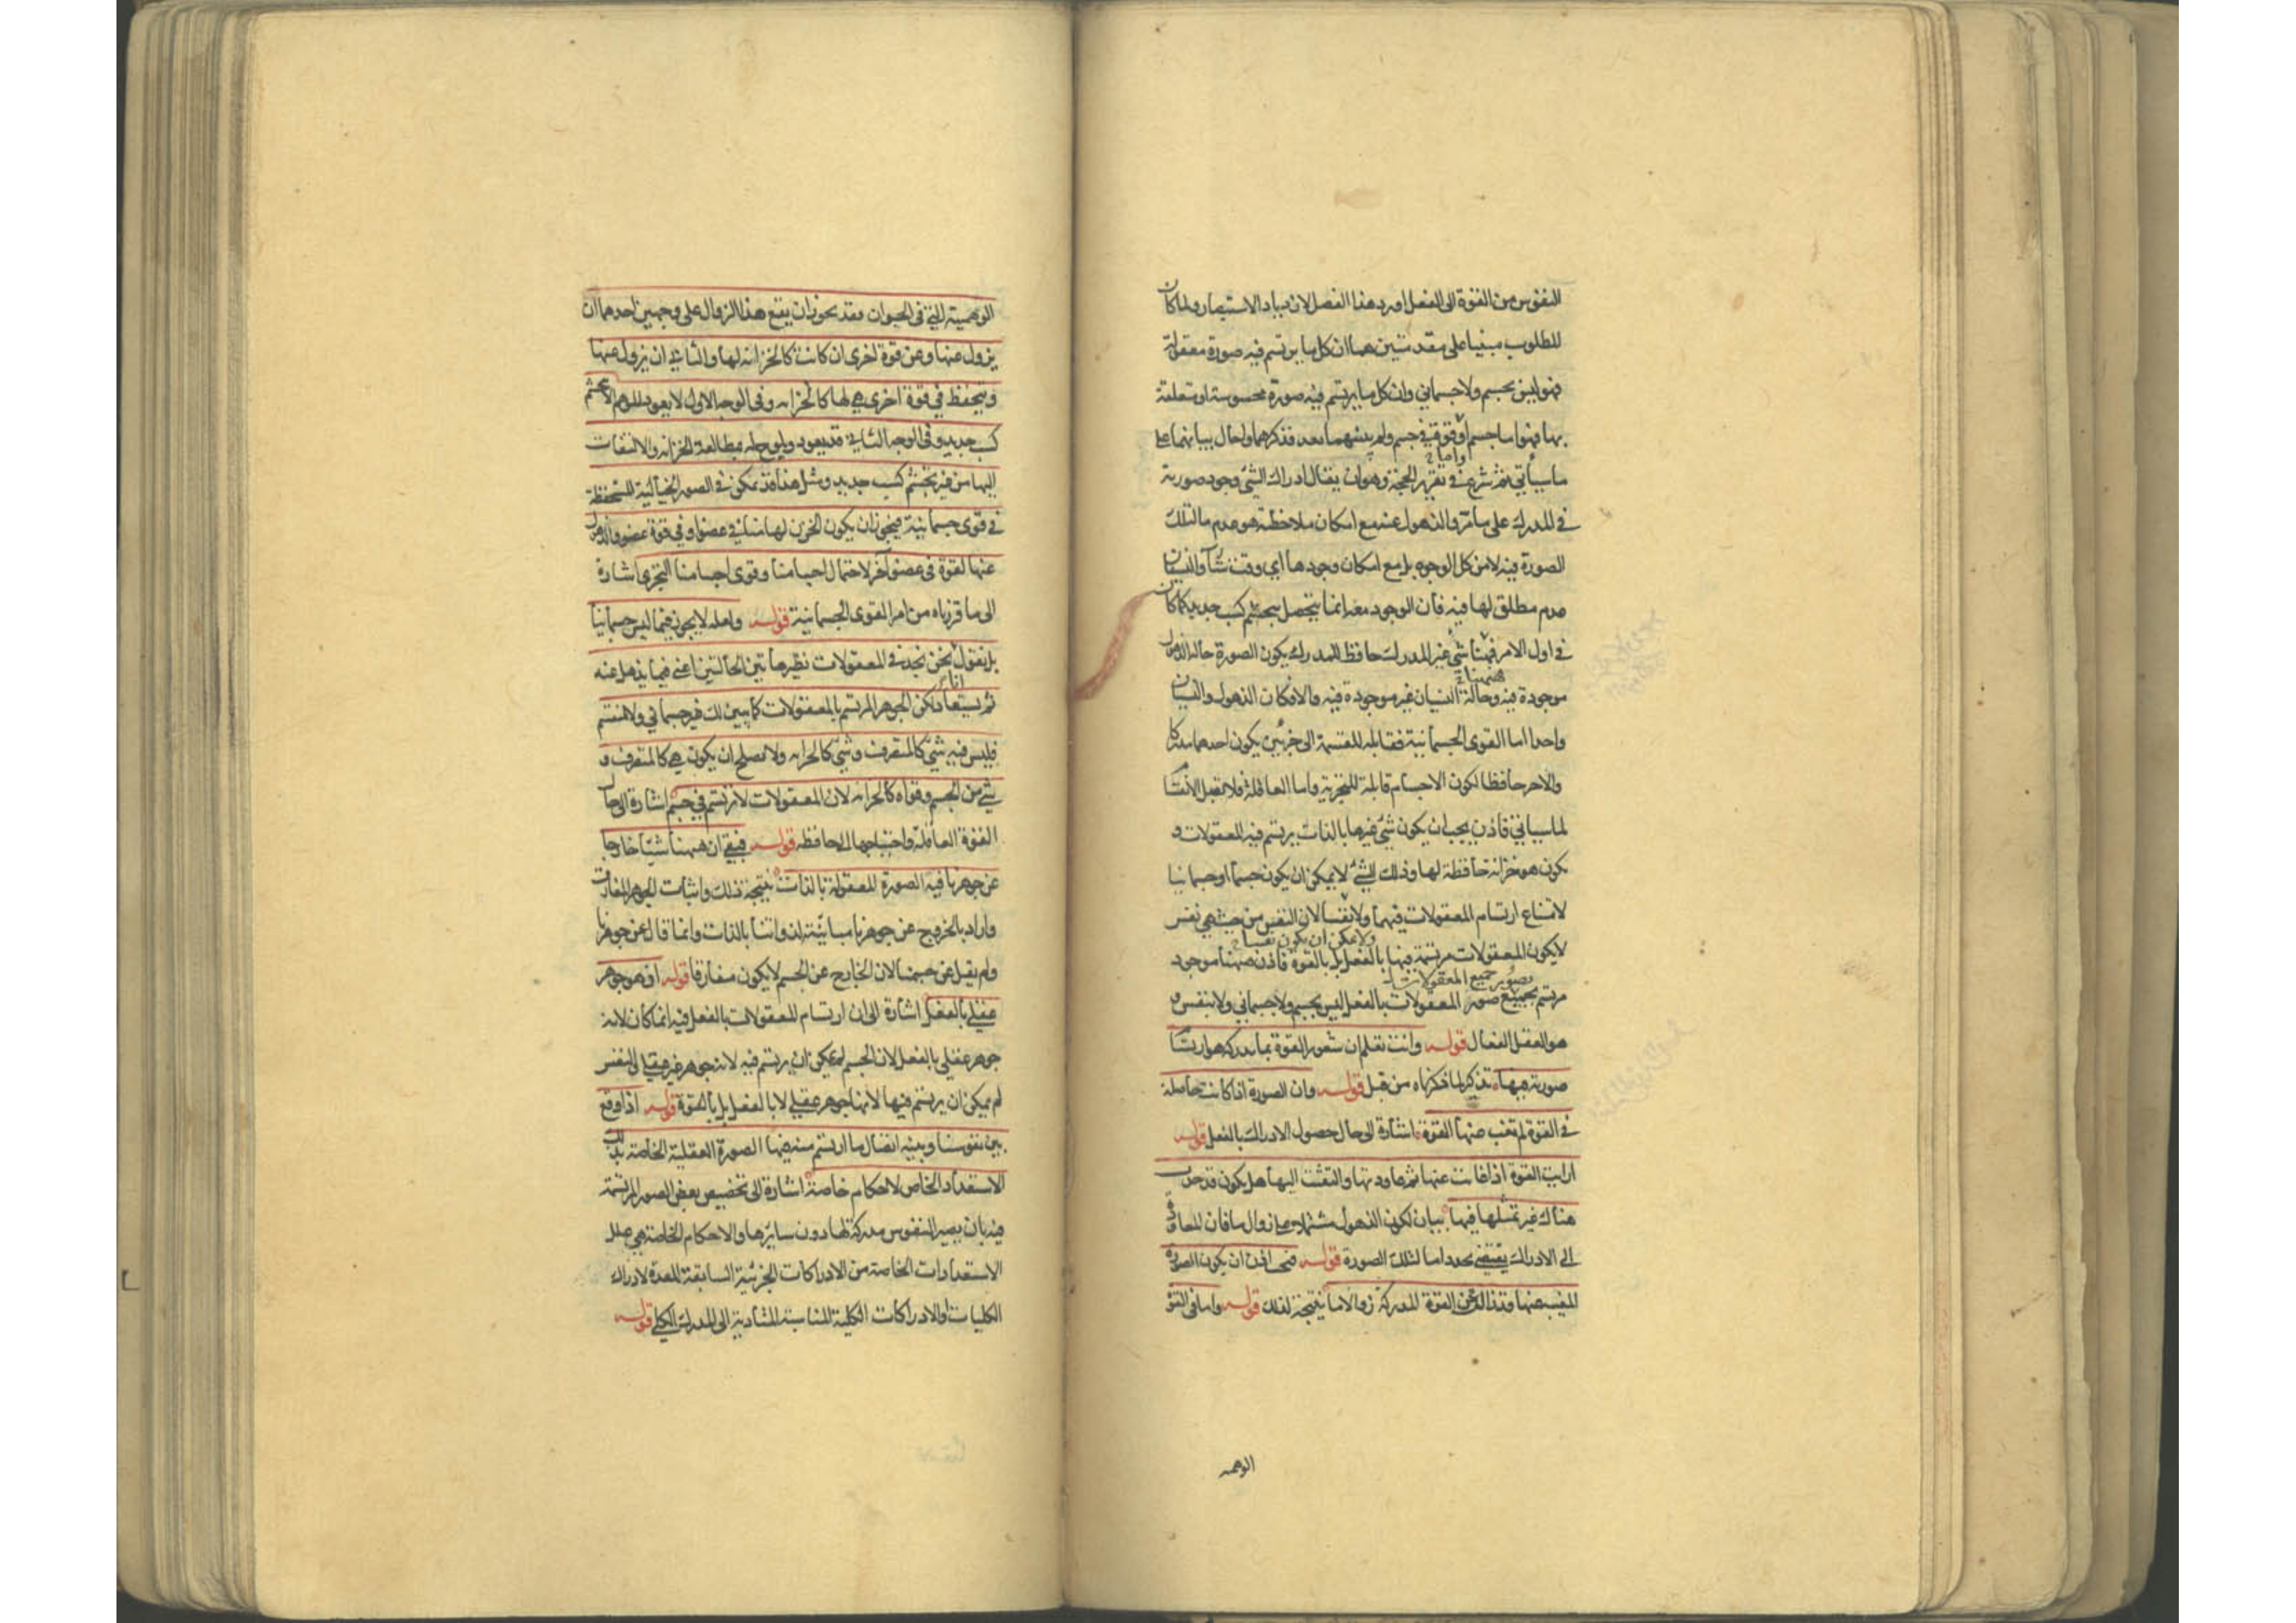 النفوس من القوة الى الفعل اورد هذا الفصل لازدياد الاستبصار ولما كان
المطلوب مبنيا على مقدمتين هما ان كل ما يرتسم فيه صورة معقولة
فهو ليس بجسم ولا جسماني وان كل ما يرتسم فيه صورة محسوسة او متعلقة
بها فهو اما جسم او قوة في جسم ولم يبينهما بعد فذكرهما واحال بيانهما على
واما
ما سيأتي ثم شرع في تقرير الحجة وهو ان يقال ادراك الشئ وجود صورته
في المدرك على ما مر والذهول عنه مع امكان ملاحظته هو عدم ما لتلك
الصورة فيه لا من كل الوجوه بل مع امكان وجودها اي وقت شاء والنسيان
عدم مطلق لها فيه فان الوجود معه انما يتحصل بتجشم كسب جديد كما كان
في اول الامر فههنا شئ غير المدرك حافظ للمدرك يكون الصورة حالة الذهول
ههنا
موجودة فيه وحالة النسيان غير موجودة فيه والا فكان الذهول والنسيان
واحدا اما القوى الجسمانية فقابلة للقسمة الى جزئين يكون احدهما مدركا
والاخر حافظا لكون الاجسام قابلة للتجزية واما العاقلة فلا تقبل الانقسام
لما سيأتي فاذن يجب ان يكون شئ غيرها بالذات يرتسم فيه المعقولات و
يكون هو خزانة حافظة لها وذلك الشئ لا يمكن ان يكون جسما او جسمانيا
لامتناع ارتسام المعقولات فيهما ولا نفسا لان النفس من حيث هي نفس
ولا يمكن ان يكون نفسا
لا يكون المعقولات مرتسمة فيها بالفعل بل بالقوة فاذن ههنا موجود
بصور جميع المعقولات
مرتسم بجميع صور المعقولات بالفعل ليس بجسم ولا جسماني ولا بنفس و
هو العقل الفعال قوله وانت تعلم ان شعور القوة بما تدركه هو ارتسام
صورته فيها تذكير لما ذكرناه من قبل قوله وان الصورة اذا كانت حاصلة
في القوة لم تغب عنها القوة اشارة الى حال حصول الادراك بالفعل قوله
ارايت القوة اذا غابت عنها ثم عاودتها والتفتت اليها هل يكون قد حدث
هناك غير تمثلها فيها بيان لكون الذهول مشتملا على زوال ما فان المعاودة
الى الادراك يقتضي تجدد ما لتلك الصورة قوله فيجب اذن ان يكون الصورة
المغيب عنها قد زالت عن القوة المدركة زوالا ما نتيجة لذلك قوله واما في القوة
الوهمية
الوهمية التي في الحيوان فقد يجوز ان يقع هذا الزوال على وجهين احدهما ان
يزول عنها وعن قوة اخرى ان كانت كالخزانة لها والثاني ان يزول عنها
ويتحفظ في قوة اخرى هي لها كالخزانة وفي الوجه الاول لا يعود للوهم الا بتجشم
كسب جديد وفي الوجه الثاني قد يعود ويلوح له بمطالعة الخزانة والالتفات
اليها من غير تجشم كسب جديد ومثل هذا قد يمكن في الصور الخيالية المستحفظة
في قوى جسمانية فيجوز ان يكون الخزن لها منا في عضو او في قوة عضو والذهول
عنها لقوة في عضو آخر لاحتمال اجسامنا وقوى اجسامنا التجزي اشارة
الى ما قررناه من امر القوى الجسمانية قوله ولعله لا يجوز فيما ليس جسمانيا
بل نقول نحن نجد في المعقولات نظير هاتين الحالتين اعني فيما يذهل عنه
ثم يستعاد لكن الجوهر المرتسم بالمعقولات كما يبين لك غير جسماني ولا منقسم
فليس فيه شئ كالمتصرف وشئ كالخزانة ولا يصلح ان يكون هي كالمتصرف و
شئ من الجسم وقواه كالخزانة لان المعقولات لا ترتسم في جسم اشارة الى حال
القوة العاقلة واحتياجها الى الحافظة قوله فبقي ان ههنا شيئا خارجا
عن جوهرنا فيه الصورة المعقولة بالذات نتيجة لذلك واثبات للجوهر المفارق
واراد بالخروج عن جوهرنا مباينته لذواتنا بالذات وانما قال عن جوهرنا
ولم يقل عن جسمنا لان الخارج عن الجسم لا يكون مفارقا قوله اذ هو جوهر
عقلي بالفعل اشارة الى ان ارتسام المعقولات بالفعل فيه انما كان لانه
جوهر عقلي بالفعل لان الجسم لم يمكن ان يرتسم فيه لانه جوهر غير عقلي والنفس
لم يمكن ان يرتسم فيها لانها جوهر عقلي لا بالفعل بل بالقوة قوله اذا وقع
بين نفوسنا وبينه اتصال ما ارتسم منه فيها الصورة العقلية الخاصة بذلك
الاستعداد الخاص لاحكام خاصة اشارة الى تخصيص بعض الصور المرتسمة
فيه بان يصير النفوس مدركة لها دون سايرها والاحكام الخاصة هي علل
الاستعدادات الخاصة من الادراكات الجزئية السابقة المعدة لادراك
الكليات والادراكات الكلية المناسبة المتأدية الى المدرك الكلي قوله